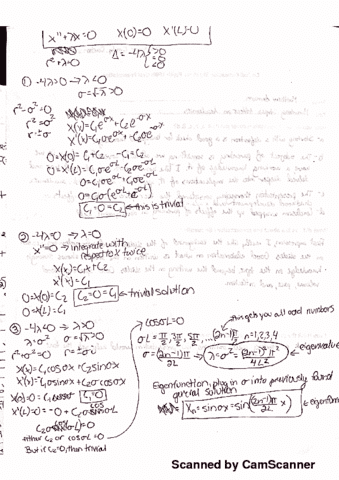 x''+λx=0 x(0)=0 x'(L)=0
r²+λ=0 Δ=-4λ >0 =0 <0
① -4λ>0 → λ<0
σ=√-λ>0
r²-σ²=0
r²=σ²
r=±σ
x(x)=C₁e^σx+C₂e^-σx
x'(x)=C₁σe^σx-C₂σe^-σx
0=x(0)=C₁+C₂ -C₁=C₂
0=x'(L)=C₁σe^σL-C₂σe^-σL
0=C₁σe^σL+C₁σe^-σL
0=C₁σ(e^σL+e^-σL)
C₁=0=C₂ this is trivial
② -4λ=0 → λ=0
x''=0 → integrate with
respect to x twice
x(x)=C₁x+C₂
x'(x)=C₁
0=x(0)=C₂ C₂=0=C₁ trivial solution
0=x'(L)=C₁
③ -4λ<0 → λ>0
λ=σ² σ=√λ>0
r²+σ²=0 r=±σi
x(x)=C₁cosσx+C₂sinσx
x'(x)=-C₁σsinσx+C₂σcosσx
x(0)=0=C₁ C₁=0
x'(L)=0=-0+C₂σcosσL
C₂σcosσL=0
either C₂ or cosσL=0
But if C₂=0, then trivial
cosσL=0
this gets you all odd numbers
σL=π/2, 3π/2, 5π/2, ... (2n-1)π/2 n=1,2,3,4
σ=(2n-1)π/2L → λ=σ²=(2n-1)²π²/4L² eigenvalue
Eigenfunction, plug in σ into previously found
general solution
Xₙ=sinσx=sin((2n-1)π/2L x)
Scanned by CamScanner